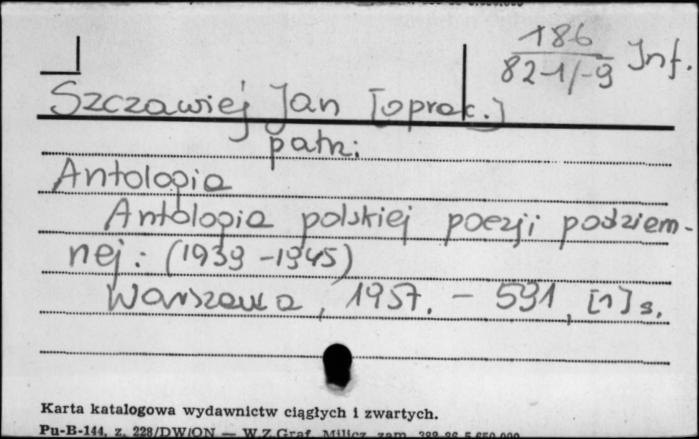 186
82-1/-9 Inf.
Szczawiej Jan [oprac.]
patrz:
Antologia
Antologia polskiej poezji podziem-
nej: (1939-1945)
Warszawa, 1957. - 591, [1] s.
Karta katalogowa wydawnictw ciągłych i zwartych.
Pu-B-144, z. 228/DW/ON — W.Z.Graf. Milicz, zam.